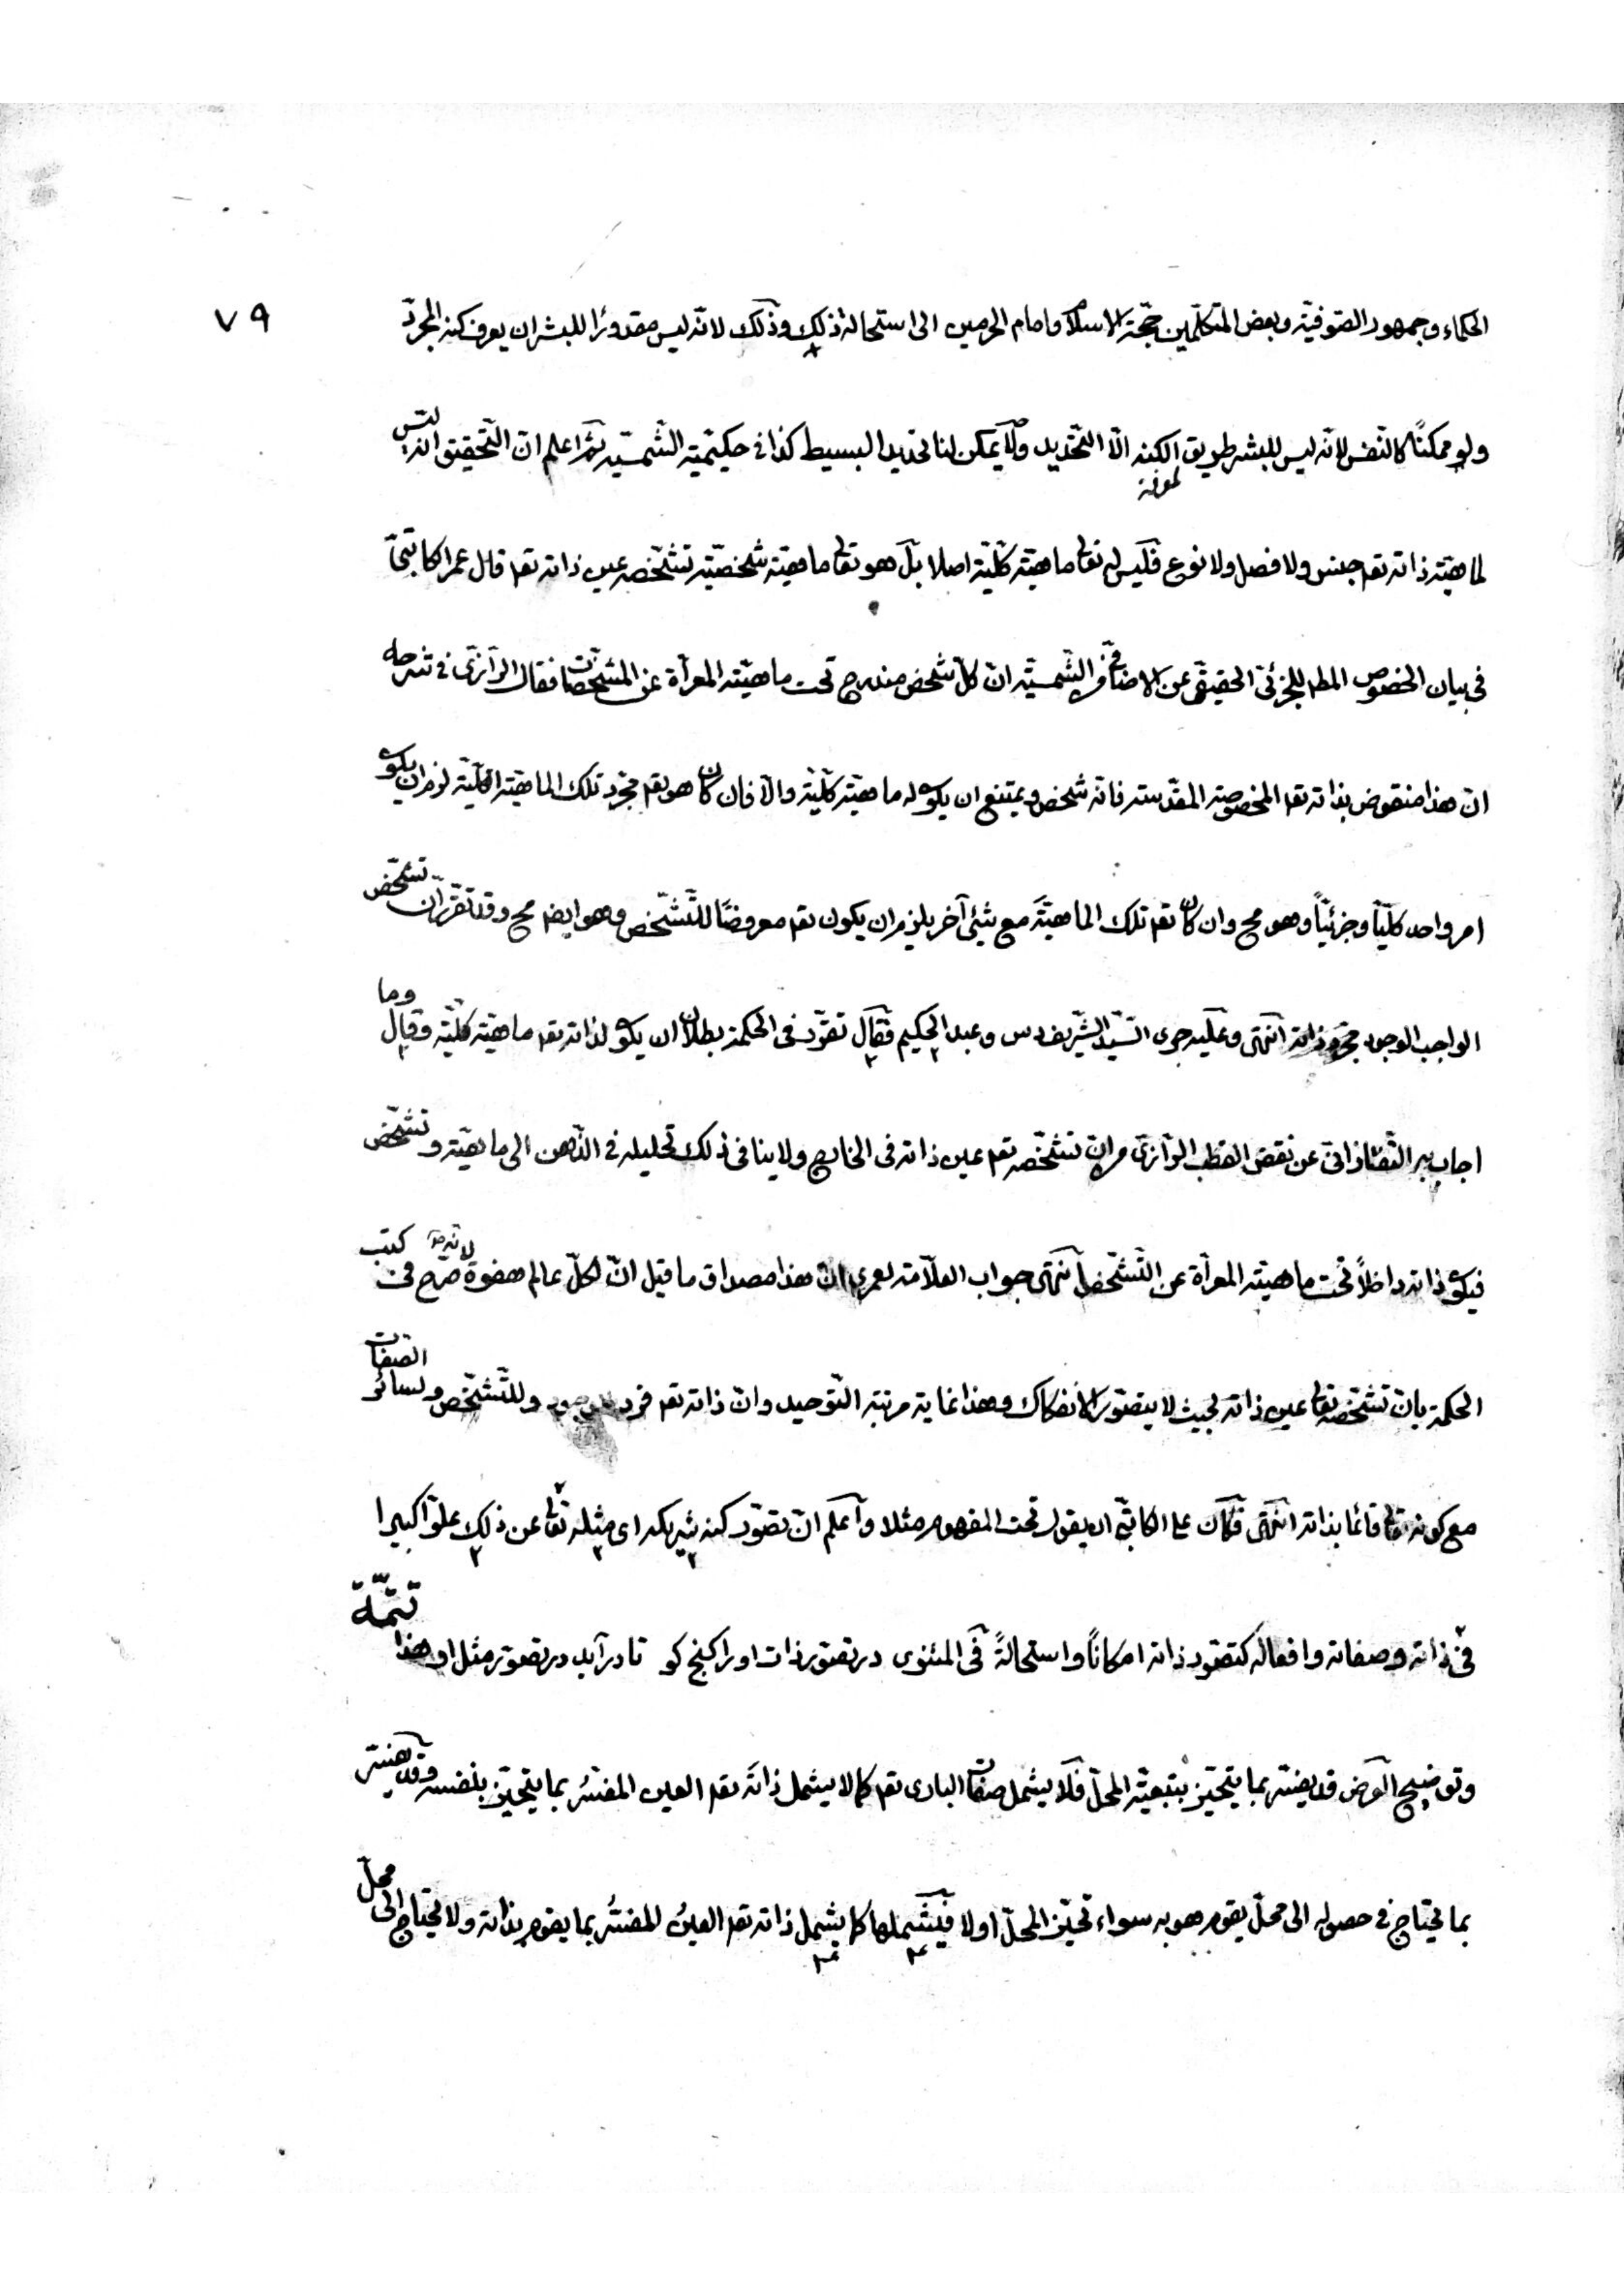 ٧٩
الحكماء وجمهور الصّوفيّة وبعض المتكلّمين حجّة الاسلام وامام الحرمين الى استحالة ذلك وذلك لانّه ليس مقدورًا للبشر ان يعرف كنه المجرّد
ولو ممكنًا كالنّفس لانّه ليس للبشر طريق لمعرفة الكنه الّا التّحديد ولا يمكن لنا تحديد البسيط كذا في حكيميّة الشّمسيّة ثمّ اعلم انّ التّحقيق انّه ليس
لماهيّة ذاته تعم جنس ولا فصل ولا نوع فليس له تعالى ماهيّة كلّيّة اصلا بل هو تعالى ماهيّة شخصيّة تشخّصه عين ذاته تعم قال عمر الكاتبيّ
في بيان الخصوص المطم للجزئيّ الحقيقيّ عن الاضافيّ في الشّمسيّة انّ كلّ شخص مندرج تحت ماهيّته المعرأة عن المشخّصات فقال الرّازيّ في شرحه
انّ هذا منقوض بذاته تعم المخصوصة المقدّسة فانّه شخص ويمتنع ان يكون له ماهيّة كلّيّة والّا فان كان هو تعم مجرّد تلك الماهيّة الكلّيّة لزم ان يكون
امر واحد كلّيّاً وجزئيّاً وهو مح وان كان تعم تلك الماهيّة مع شئ آخر يلزم ان يكون تعم معروضًا للتّشخّص وهو ايضا مح وقد تقرّر انّ تشخّص
الواجب الوجود مجرّد ذاته انتهى وعليه جرى السّيّد الشّريف قدس وعبد الحكيم فقال تقرّر في الحكمة بطلان ان يكون لذاته تعم ماهيّة كلّيّة وقال وما
اجاب به التّفتازانيّ عن نقض القطب الرّازيّ من انّ تشخّصه تعم عين ذاته في الخارج ولا ينافي ذلك تحليله في الذّهن الى ماهيّة وتشخّص
فيكون ذاته داخلاً تحت ماهيّته المعرأة عن التّشخّص انتهى جواب العلّامة لعمري انّ هذا مصداق ما قيل انّ لكلّ عالم هفوة لانّه صرّح في كتب
الحكمة بانّ تشخّصه تعالى عين ذاته بحيث لا يتصوّر الانفكاك وهذا غاية مرتبة التّوحيد وانّ ذاته تعم فرد للوجود وللتّشخّص ولسائر الصّفات
مع كونه تعالى قائما بذاته انتهى فكان على الكاتبيّ ان يقول تحت المفهوم مثلا واعلم انّ تصوّر كنه شريكه اى مثله تعالى عن ذلك علوّا كبيرا
في ذاته وصفاته وافعاله كتصوّر ذاته امكاناً واستحالةً في المثنوى در تصوّر ذات او را كنج كو تا در آيد در تصوّر مثل او هذا تتمّة
وتوضيح العرض قد يفسّر بما يتحيّز بتبعيّة المحلّ فلا يشمل صفات البارى تعم كما لا يشمل ذاته تعم العين المفسّر بما يتحيّز بنفسه وقد يفسّر
بما يحتاج في حصوله الى محلّ يقوم هو به سواء تحيّز المحلّ اولا فيشملها كما يشمل ذاته تعم العين المفسّر بما يقوم بذاته ولا يحتاج الى محلّ